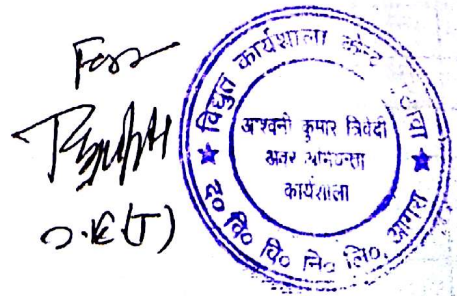 For
विद्युत कार्यशाला केन्द्र
अश्वनी कुमार त्रिवेदी
अवर अभियन्ता
कार्यशाला
द० वि० वि० नि० लि०, आगरा